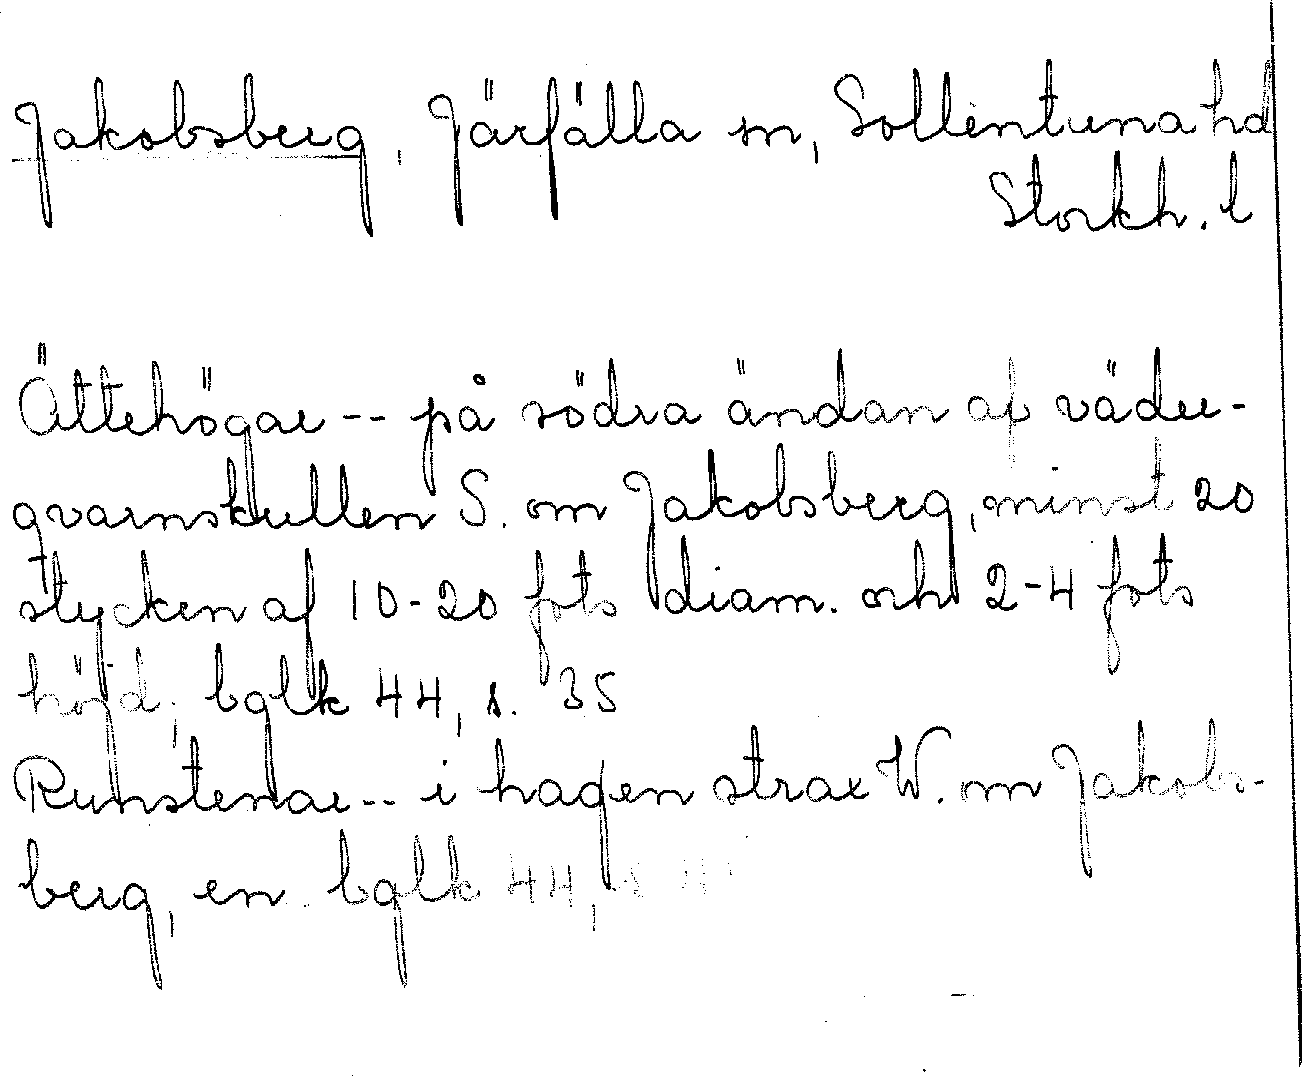 Jakobsberg, Järfälla sn, Sollentuna hd
Stockh. l
Ättehögar -- på södra ändan af väder-
qvarnskullen S. om Jakobsberg, minst 20
stycken af 10-20 fots diam. och 2-4 fots
höjd; bglk 44, s. 35
Runstenar -- i hagen strax W. om Jakobs-
berg, en. bglk 44, s